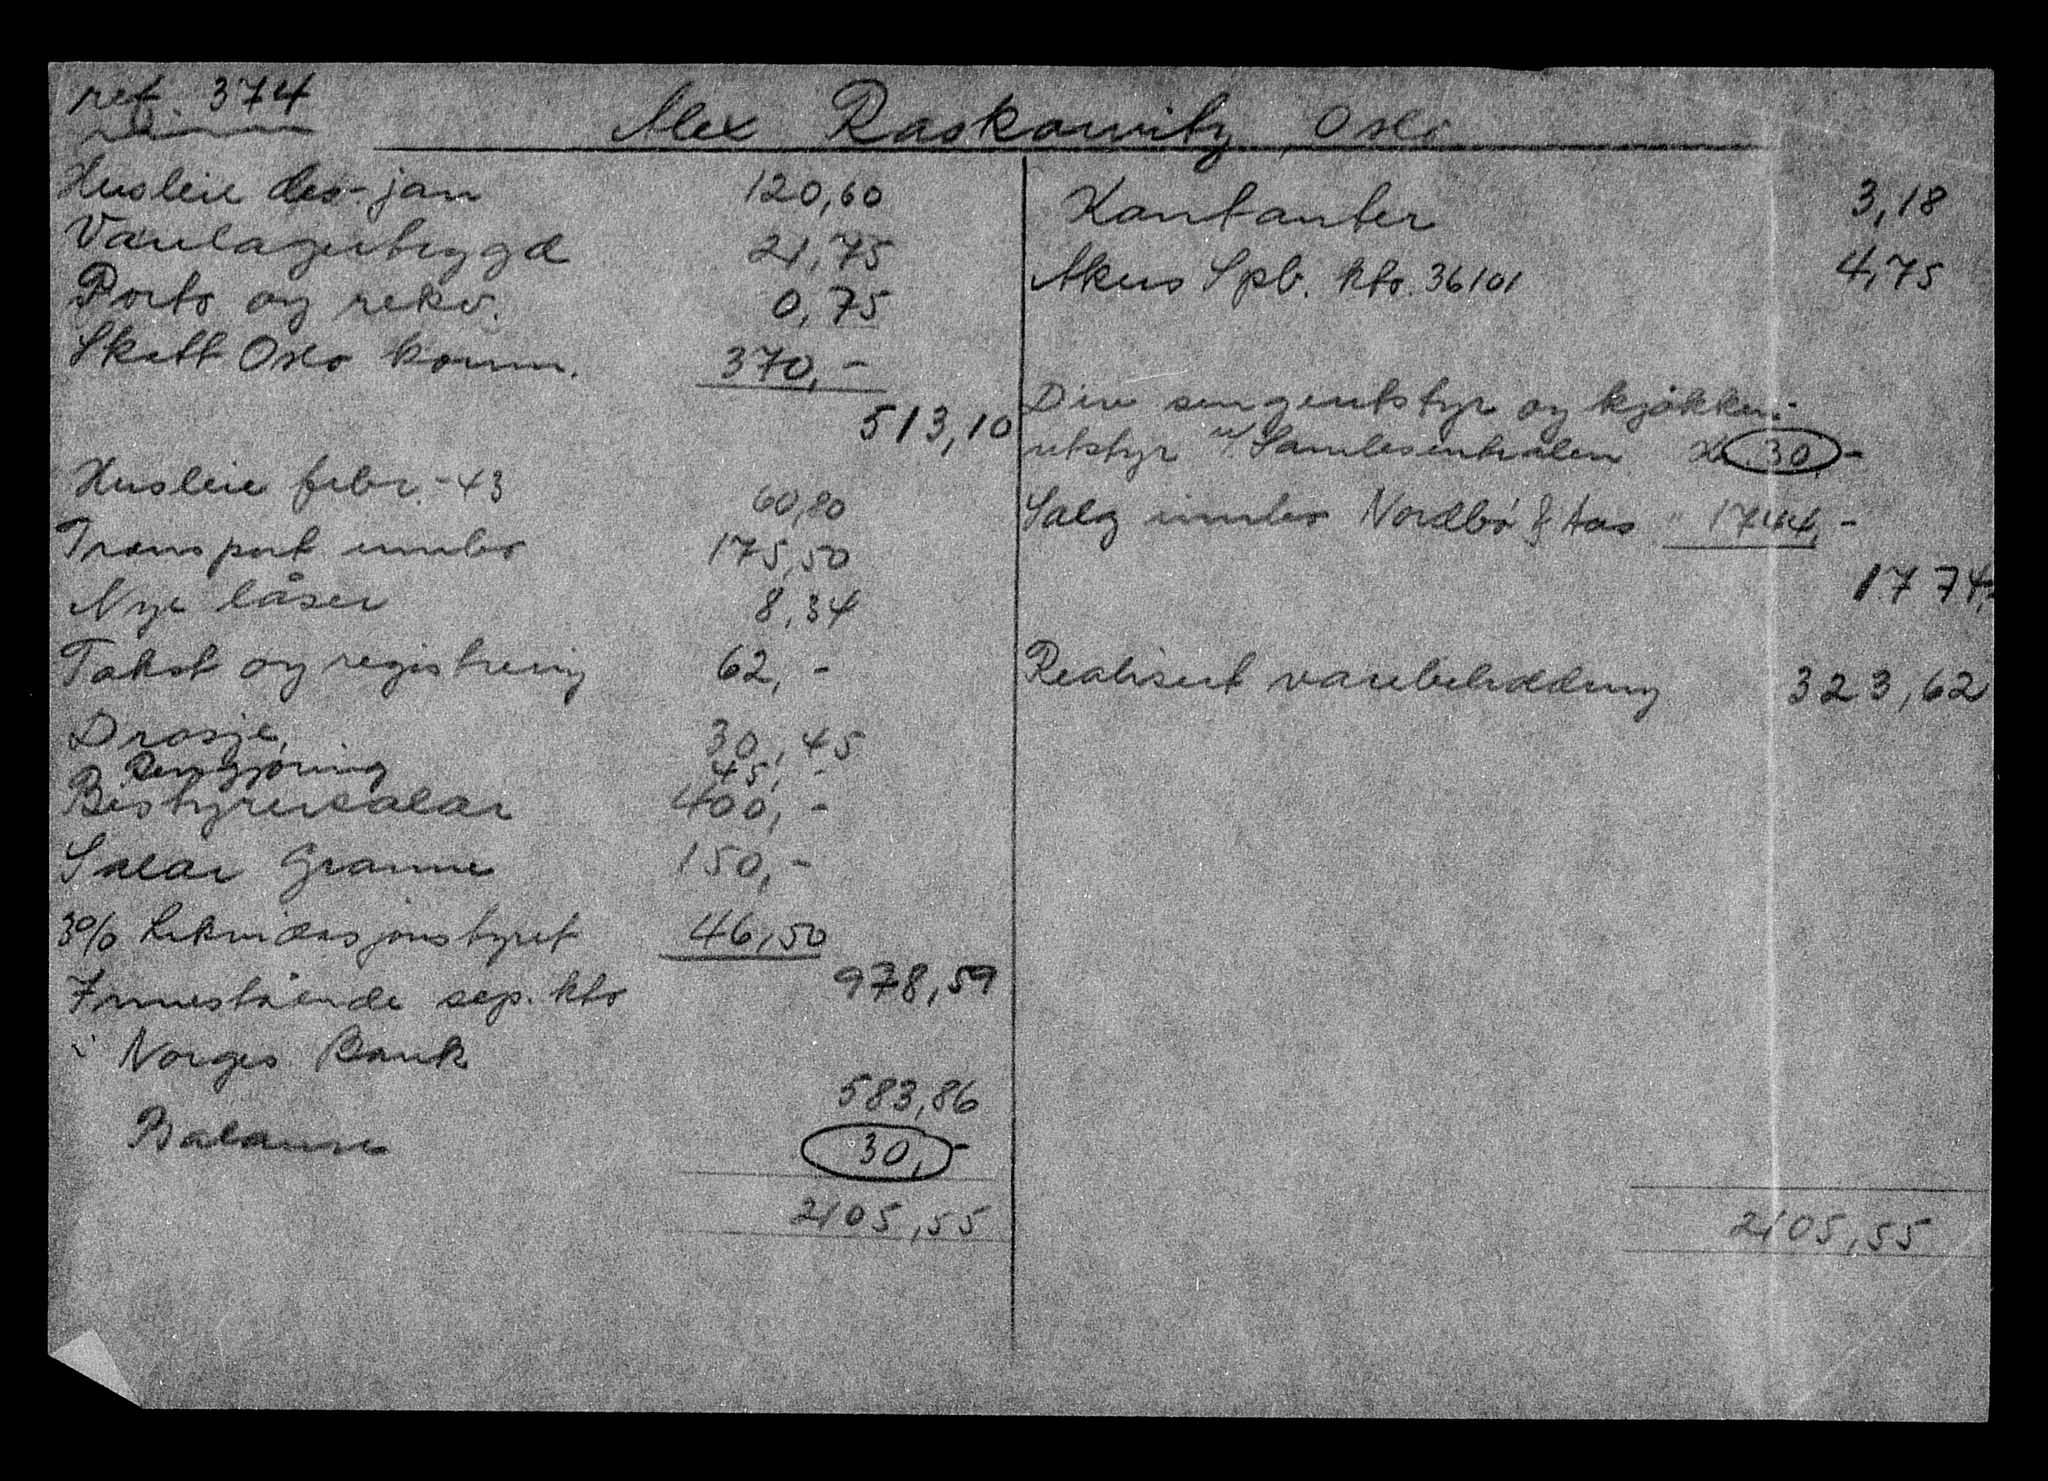 ref. 374
Alex Raskowitz, Oslo
Husleie des-jan 120,60
Varelagerbeggd 21,75
Porto og rekv. 0,75
Skatt Oslo komm. 370,-
513,10
Husleie febr.-43 60,80
Transport innbo 175,50
Nye låser 8,34
Takst og registrering 62,-
Drosje, 30,45
Rengjøring 45,-
Bestyrersalær 400,-
Salær Granne 150,-
3% Likvidasjonstyret 46,50
978,59
Innestående sep. kto
i Norges Bank
583,86
Balanse 30,-
2105,55
Kontanter 3,18
Akers Spb. kto. 36101 4,75
Div sengeutstyr og kjøkken-
utstyr v/ Samlesentralen Kr 30,-
Salg innbo Nordbø & Aas " 1744,-
1774,-
Realisert varebeholdning 323,62
2105,55